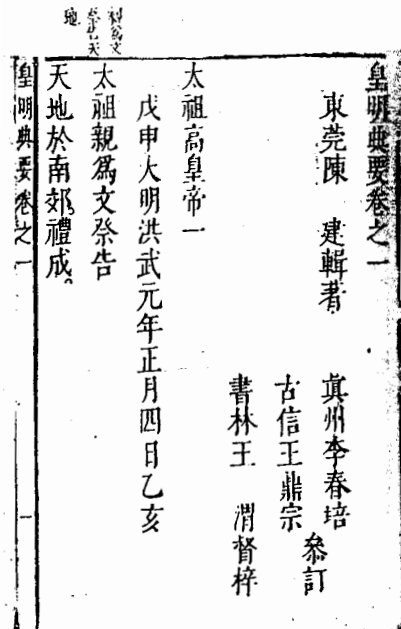 皇明典要卷之一
東莞陳 建輯著
眞州李春培
古信王鼎宗
叅訂
書林王 渭督梓
太祖高皇帝一
戊申大明洪武元年正月四日乙亥
太祖親爲文祭告
天地於南郊禮成
皇明典要卷之一
一
天
地